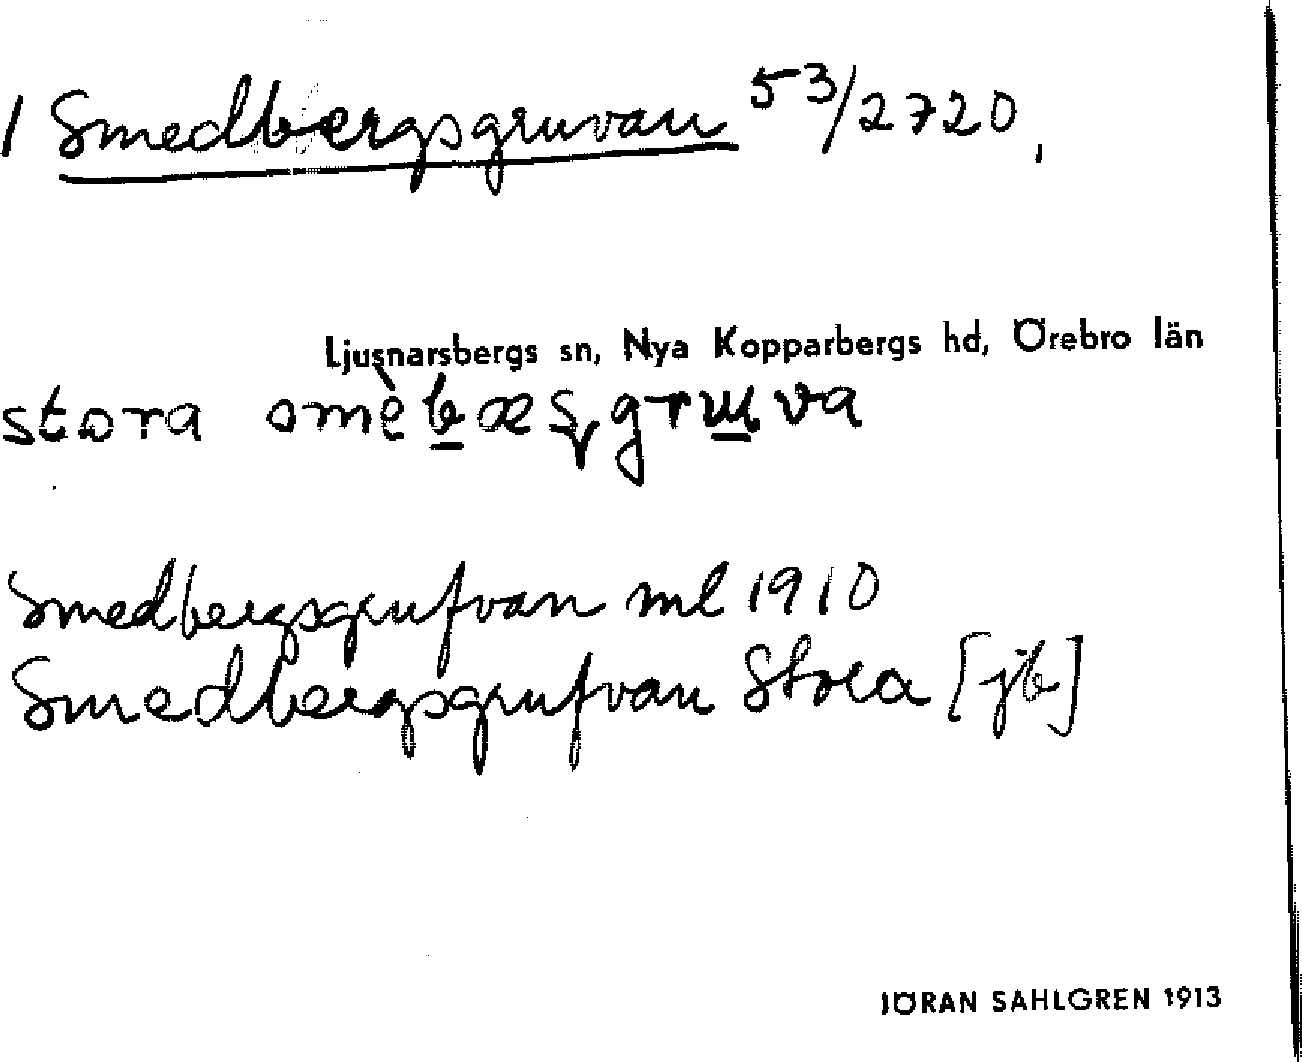 1 Smedbergsgruvan 53/2720,
Ljusnarsbergs sn, Nya Kopparbergs hd, Örebro län
stora smèbæşgruva
Smedbergsgrufvan ml 1910
Smedbergsgrufvan Stora [jb]
JÖRAN SAHLGREN 1913